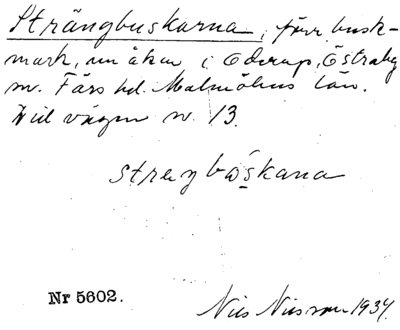 Strängbuskarna, förr busk-
mark, nu åker i Oderup, Östraby
sn. Färs hd. Malmöhus län.
Vid vägen n. 13.
strengbåskana
Nr 5602.
Nils Nilsson 1934.